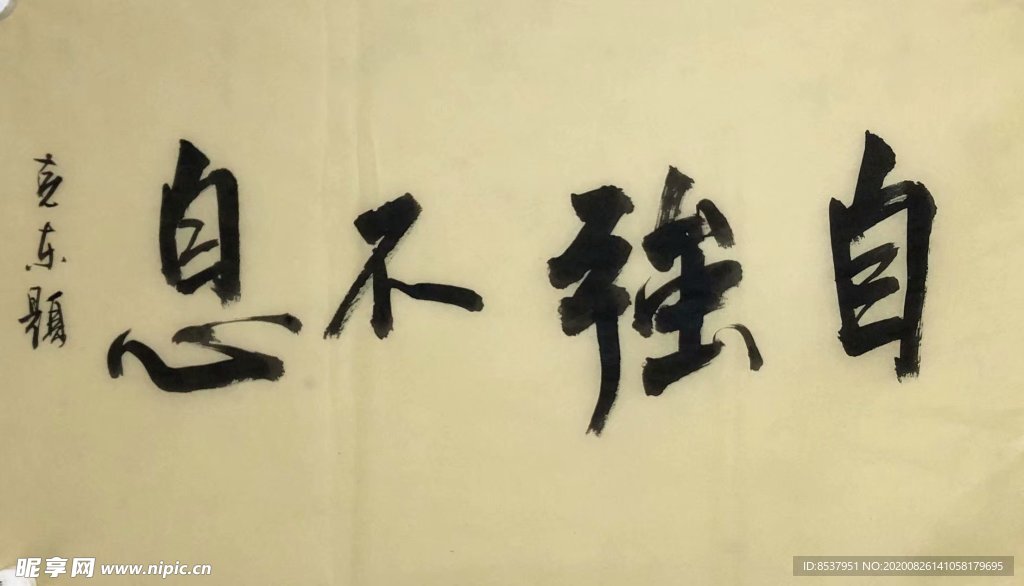 自强不息
克东题
昵享网 www.nipic.cn
ID:8537951 NO:20200826141058179695